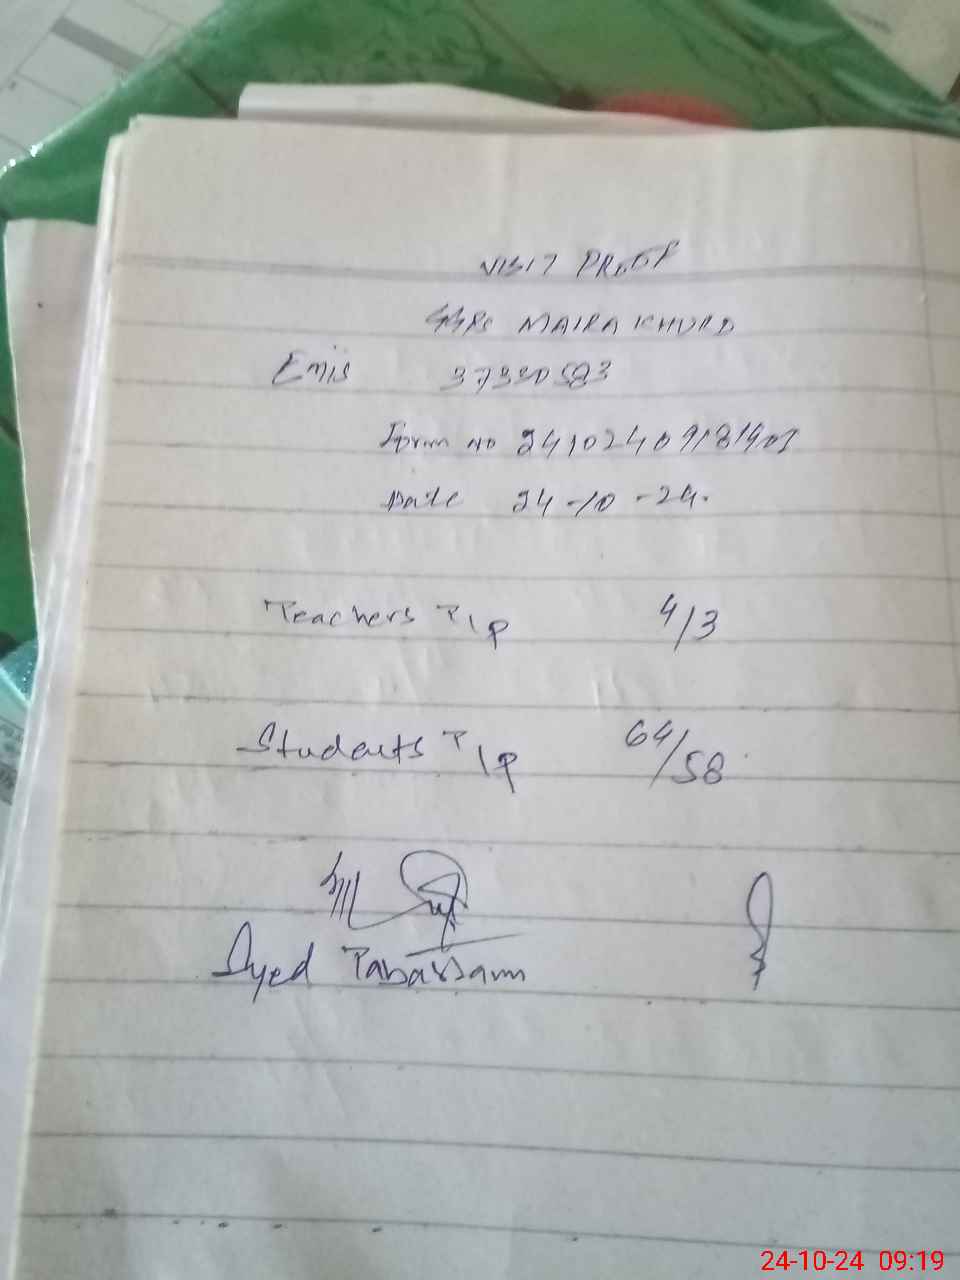 VISIT PROOF
GGPS MAIRA KHURD
Emis 37330583
Form no 24102409181401
Date 24-10-24.
Teachers T\P 4/3
Students T\P 64/58
Syed Tabassam
24-10-24 09:19